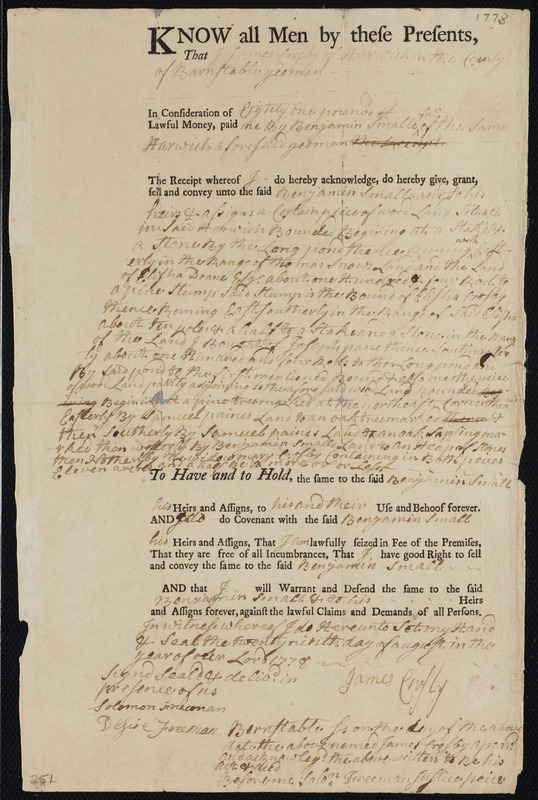 1778
KNOW all Men by theſe Preſents,
That James Crosby of Harwich in the County
of Barnstable yeoman
In Conſideration of Eighty one pounds of
Lawful Money, paid me By Benjamin Small of the Same
Harwich aforesaid yeoman the Receipt
The Receipt whereof I do hereby acknowledge, do hereby give, grant,
ſell and convey unto the ſaid Benjamin Small and to his
heirs & assigns a Certain piece of wood Land Situate
in Said Harwich Bounded Begining at a Stake &
a Stone By the Long pond thence Runing north East-
erly in the Range of Thomas Snows Land and the Land
of Elisha Doane Esqr about one Hundred & four Rods to
a pine Stump Said Stump is the Bound of Elisha Crosby
thence Runing East Southerly in the Range of Said Elisha
about ten poles & a half to a Stake and a Stone in the Rang
of the Land of Joseph pane thence Souther
ly about one Hundred and four Rods to the Long pond
By Said pond to the first mentioned Bound also one other piece
of wood Land partly adjoining to the
Begining at a pine tree marked at the north east Corner
Easterly By Samuel paines Land to an oak tree marked &
then Southerly By Samuel paines Land to an oak Sapling ma-
rked then westerly By Benjamin Smalls Land to an Heap of Stones
then Northerly By widow mary Crosby Containing in Both peices
Eleven acres and a half be it more or Less
To Have and to Hold, the ſame to the ſaid Benjamin Small
his Heirs and Aſſigns, to his and their Uſe and Behoof forever.
AND I do do Covenant with the ſaid Benjamin Small
his Heirs and Aſſigns, That I am lawfully ſeized in Fee of the Premiſes,
That they are free of all Incumbrances, That I have good Right to ſell
and convey the ſame to the ſaid Benjamin Small
AND that I will Warrant and Defend the ſame to the ſaid
Benjamin Small & to his Heirs
and Aſſigns forever, againſt the lawful Claims and Demands of all Perſons.
In witness whereof I do Hereunto Set my Hand
& Seal the twenty ninth day of august in the
year of our Lord 1778
Signd Seald & delivd in
presence of us
James Crosby
Solomon Freeman
Desire Freeman
Barnstable Ss on the day of the above
date the above named James Crosby apeard
and acknowlegd the above written to Be his
act & deed
Before me Solon Freeman Justice peice
252